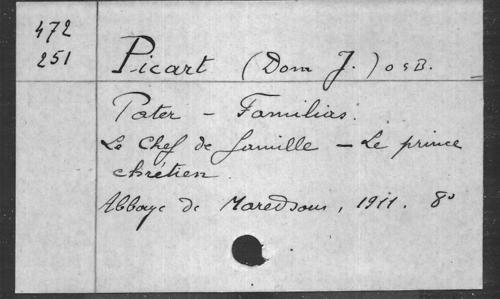 472
251
Picart (Dom J.) O S B.
Pater - Familias.
Le Chef de famille - Le prince
chrétien.
Abbaye de Maredsous, 1911. 8°